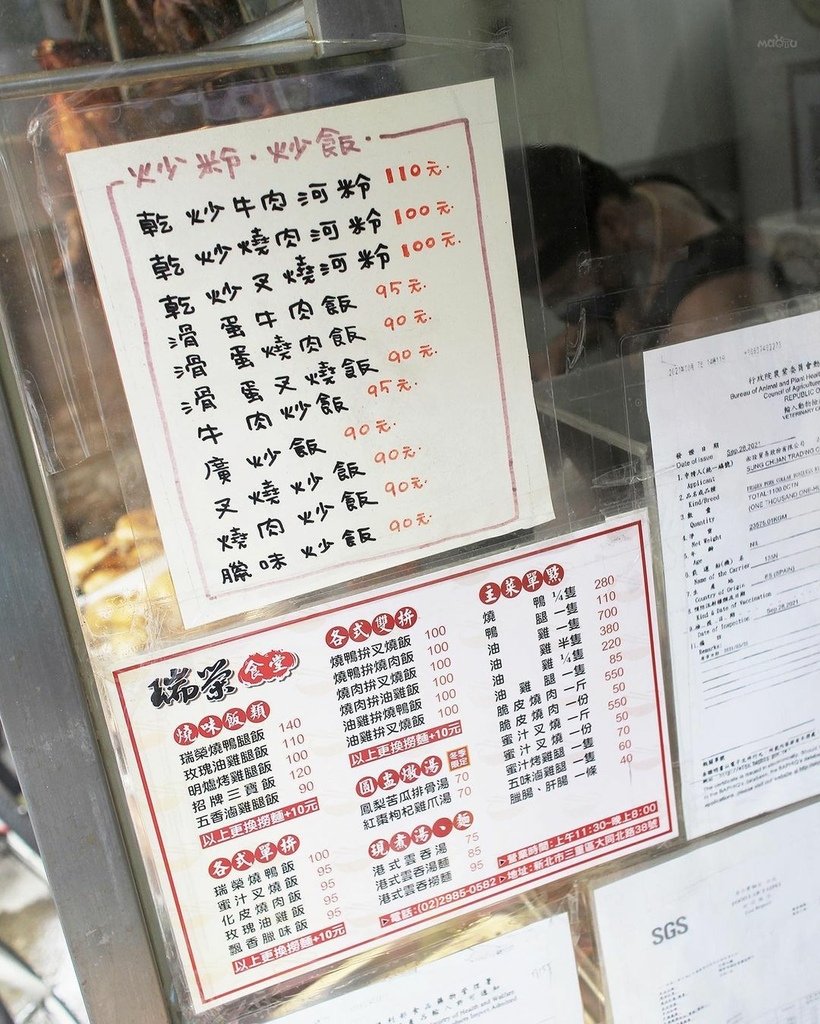 maotu
炒粉·炒飯·
乾炒牛肉河粉 110元.
乾炒燒肉河粉 100元.
乾炒叉燒河粉 100元.
滑蛋牛肉飯 95元.
滑蛋燒肉飯 90元.
滑蛋叉燒飯 90元.
牛肉炒飯 95元.
廣炒飯 90元.
叉燒炒飯 90元.
燒肉炒飯 90元.
臘味炒飯 90元.
瑞榮食堂
燒味飯類
瑞榮燒鴨腿飯 140
玫瑰油雞腿飯 110
明爐烤雞腿飯 100
招牌三寶飯 120
五香滷雞腿飯 90
以上更換撈麵+10元
各式單拚
瑞榮燒鴨飯 100
蜜汁叉燒飯 95
化皮燒肉飯 95
玫瑰油雞飯 95
飄香臘味飯 95
以上更換撈麵+10元
各式雙拚
燒鴨拚叉燒飯 100
燒鴨拚燒肉飯 100
燒肉拚叉燒飯 100
燒肉拚油雞飯 100
油雞拚燒鴨飯 100
油雞拚叉燒飯 100
以上更換撈麵+10元
圓盅燉湯 冬季限定
鳳梨苦瓜排骨湯 70
紅棗枸杞雞爪湯 70
現煮湯、麵
港式雲吞湯 75
港式雲吞湯麵 85
港式雲吞撈麵 95
主菜單點
燒鴨 ¼隻 280
鴨腿 一隻 110
油雞 一隻 700
油雞 半隻 380
油雞 ¼隻 220
油雞腿 一隻 85
脆皮燒肉 一斤 550
脆皮燒肉 一份 50
蜜汁叉燒 一斤 550
蜜汁叉燒 一份 50
蜜汁烤雞腿 一隻 70
五味滷雞腿 一隻 60
臘腸、肝腸 一條 40
▶營業時間:上午11:30~晚上8:00
▶電話:(02)2985-0582 ▶地址:新北市三重區大同北路38號
行政院農業委員會動
Bureau of Animal and Plant Heal
Council of Agriculture
REPUBLIC O
輸入動物檢
VETERINARY C
發證日期
Date of issue Sep.28,2021
1.申請人(統一編號)
Applicant SUNG CHUAN TRADING C
2.品名或品種
Kind/Breed
3.數量 TOTAL:1100.0CTN
Quantity (ONE THOUSAND ONE HU
4.淨重
Net Weight 23575.01KGM
5.年齡
Age NIL
Name of the Carrier
Country of Origin ES (SPAIN)
Kind & Date of Vaccination
Date of Inspection Sep.28,2021
Remarks:
SGS